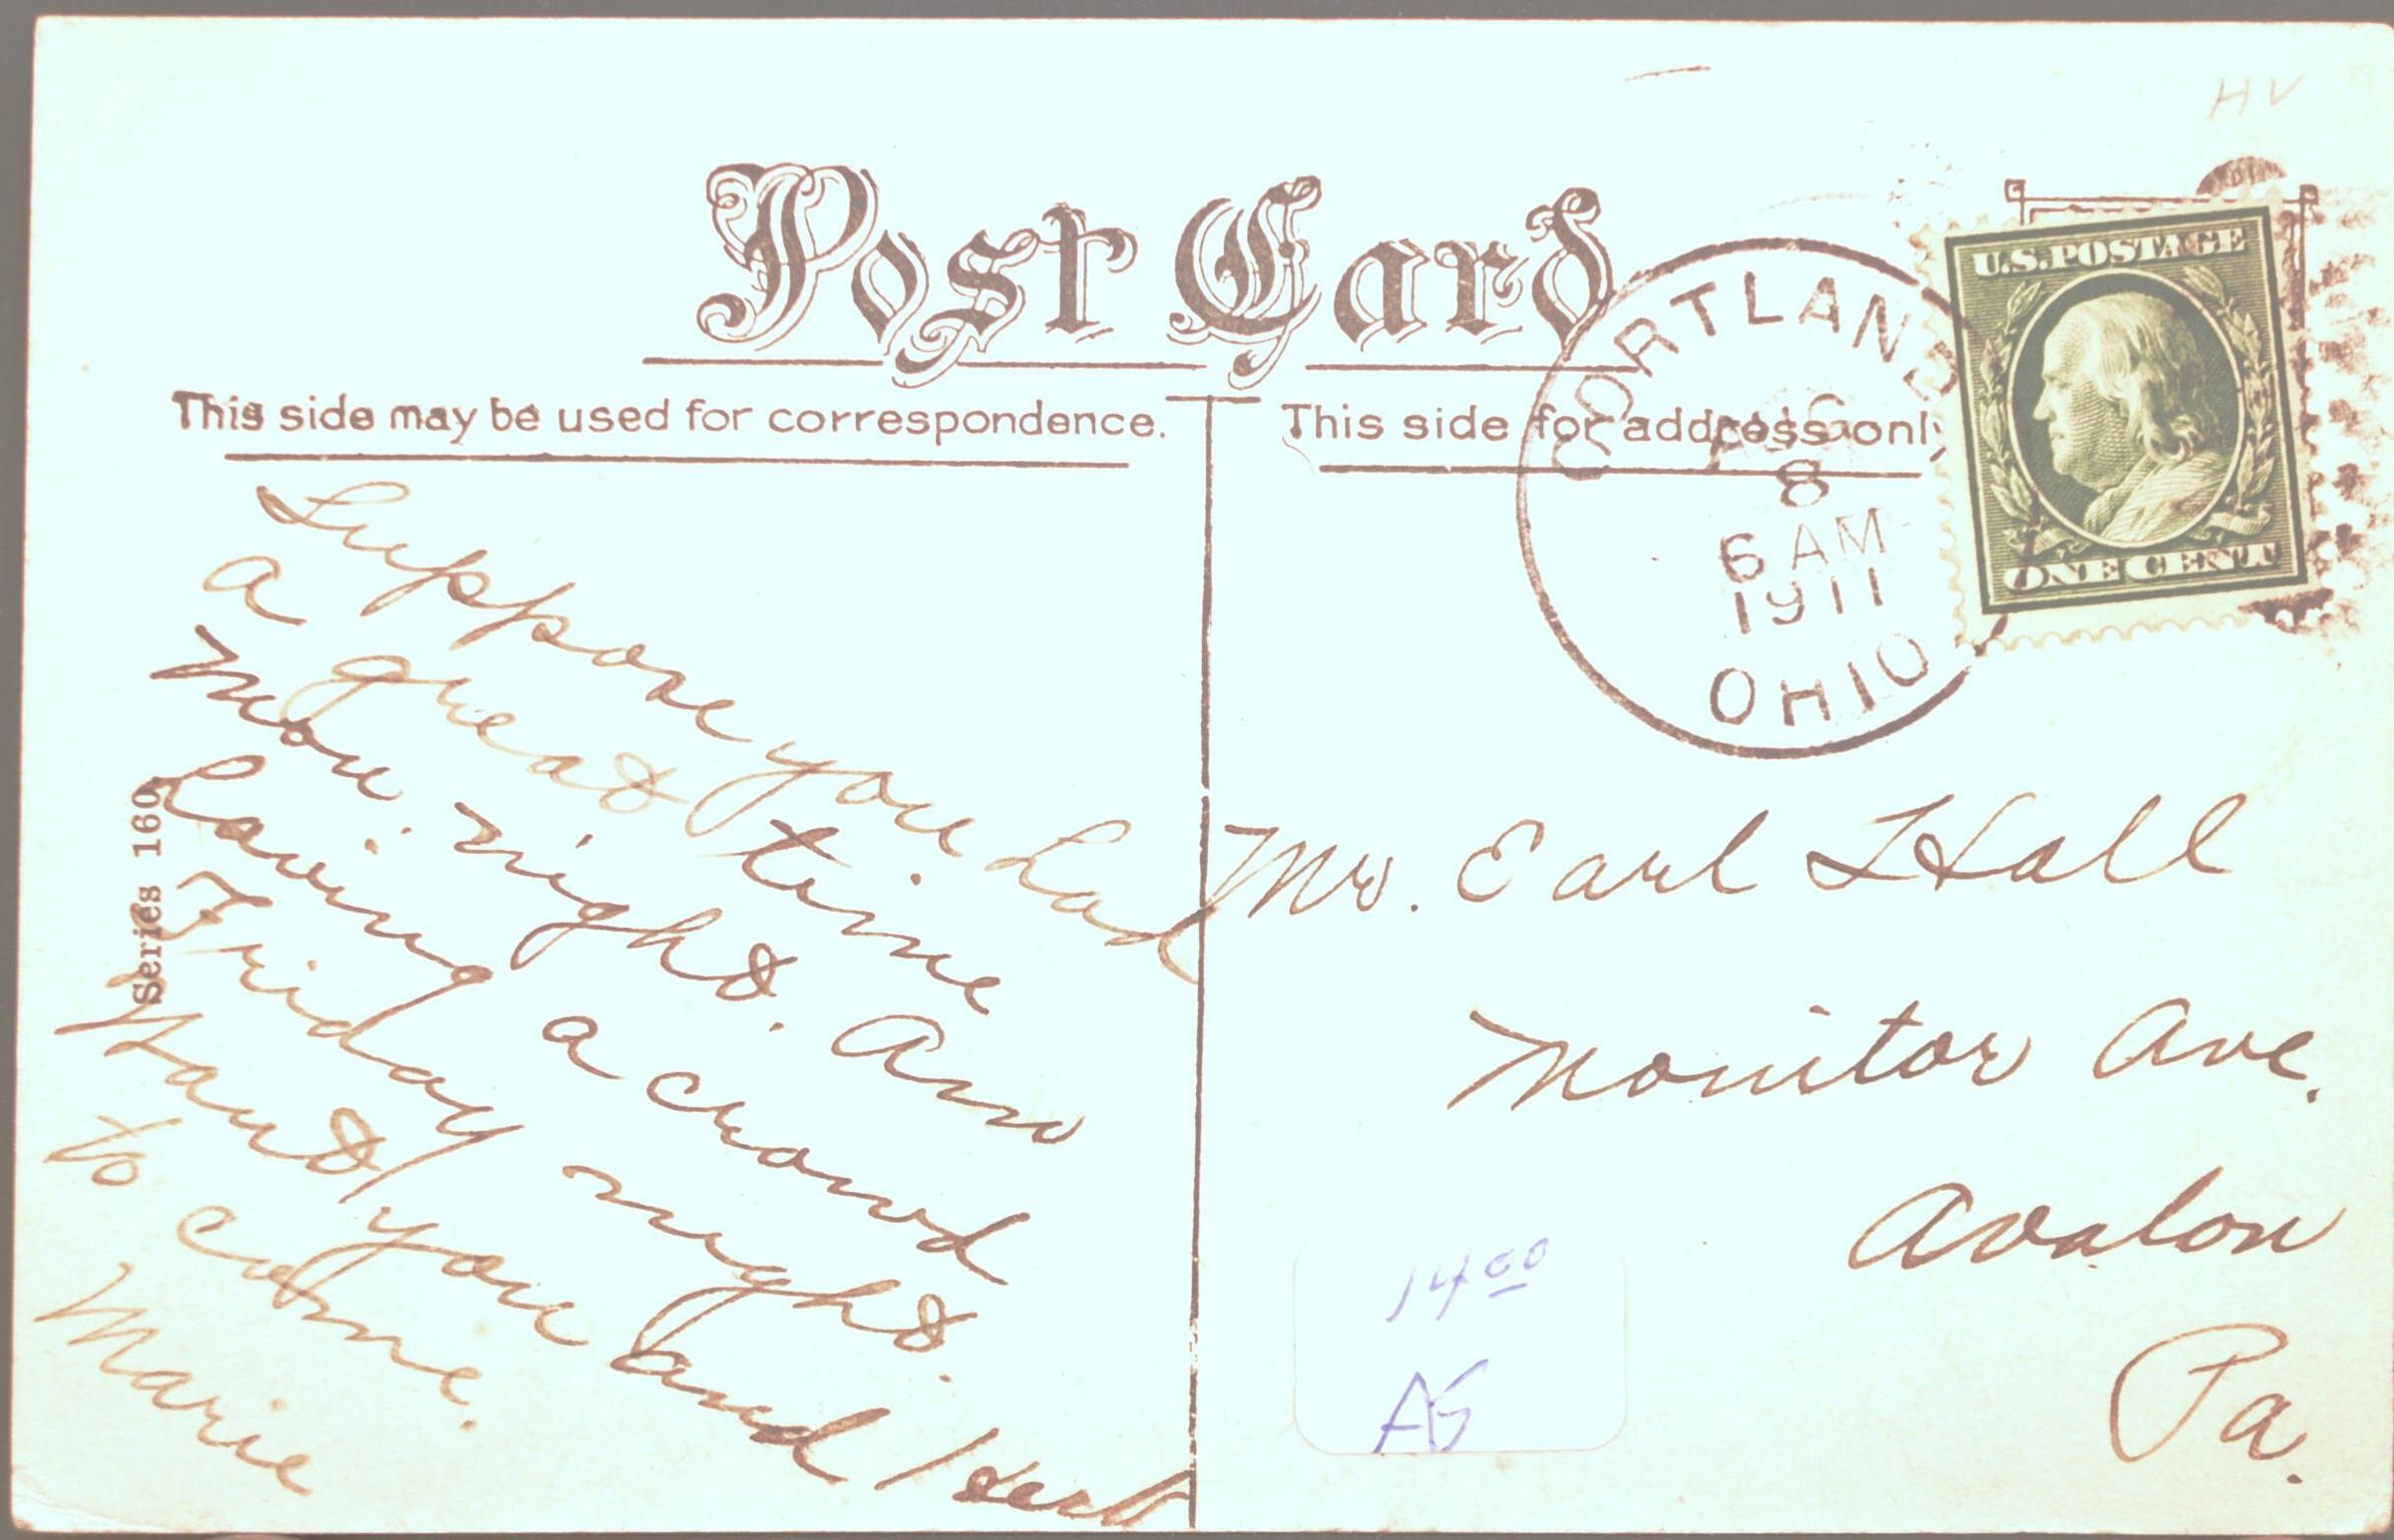 HV
Post Card
This side may be used for correspondence.
This side for address only
CORTLAND
AUG
8
6 AM
1911
OHIO
U.S. POSTAGE
ONE CENT
Suppose you had
a great time
Mon. night. Am
having a crowd
Friday night.
Want you and Herb
to come.
Marie
Series 160
Mr. Earl Hall
Monitor Ave.
Avalon
Pa.
14 00
AG